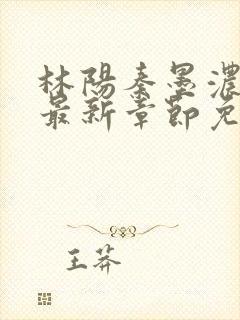 林陽秦墨濃
最新章節免
王莽